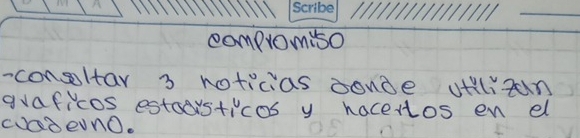 Scribe
compromiso
-consultar 3 noticias donde utilizan
graficos estadisticos y hacerlos en el
cuaderno.